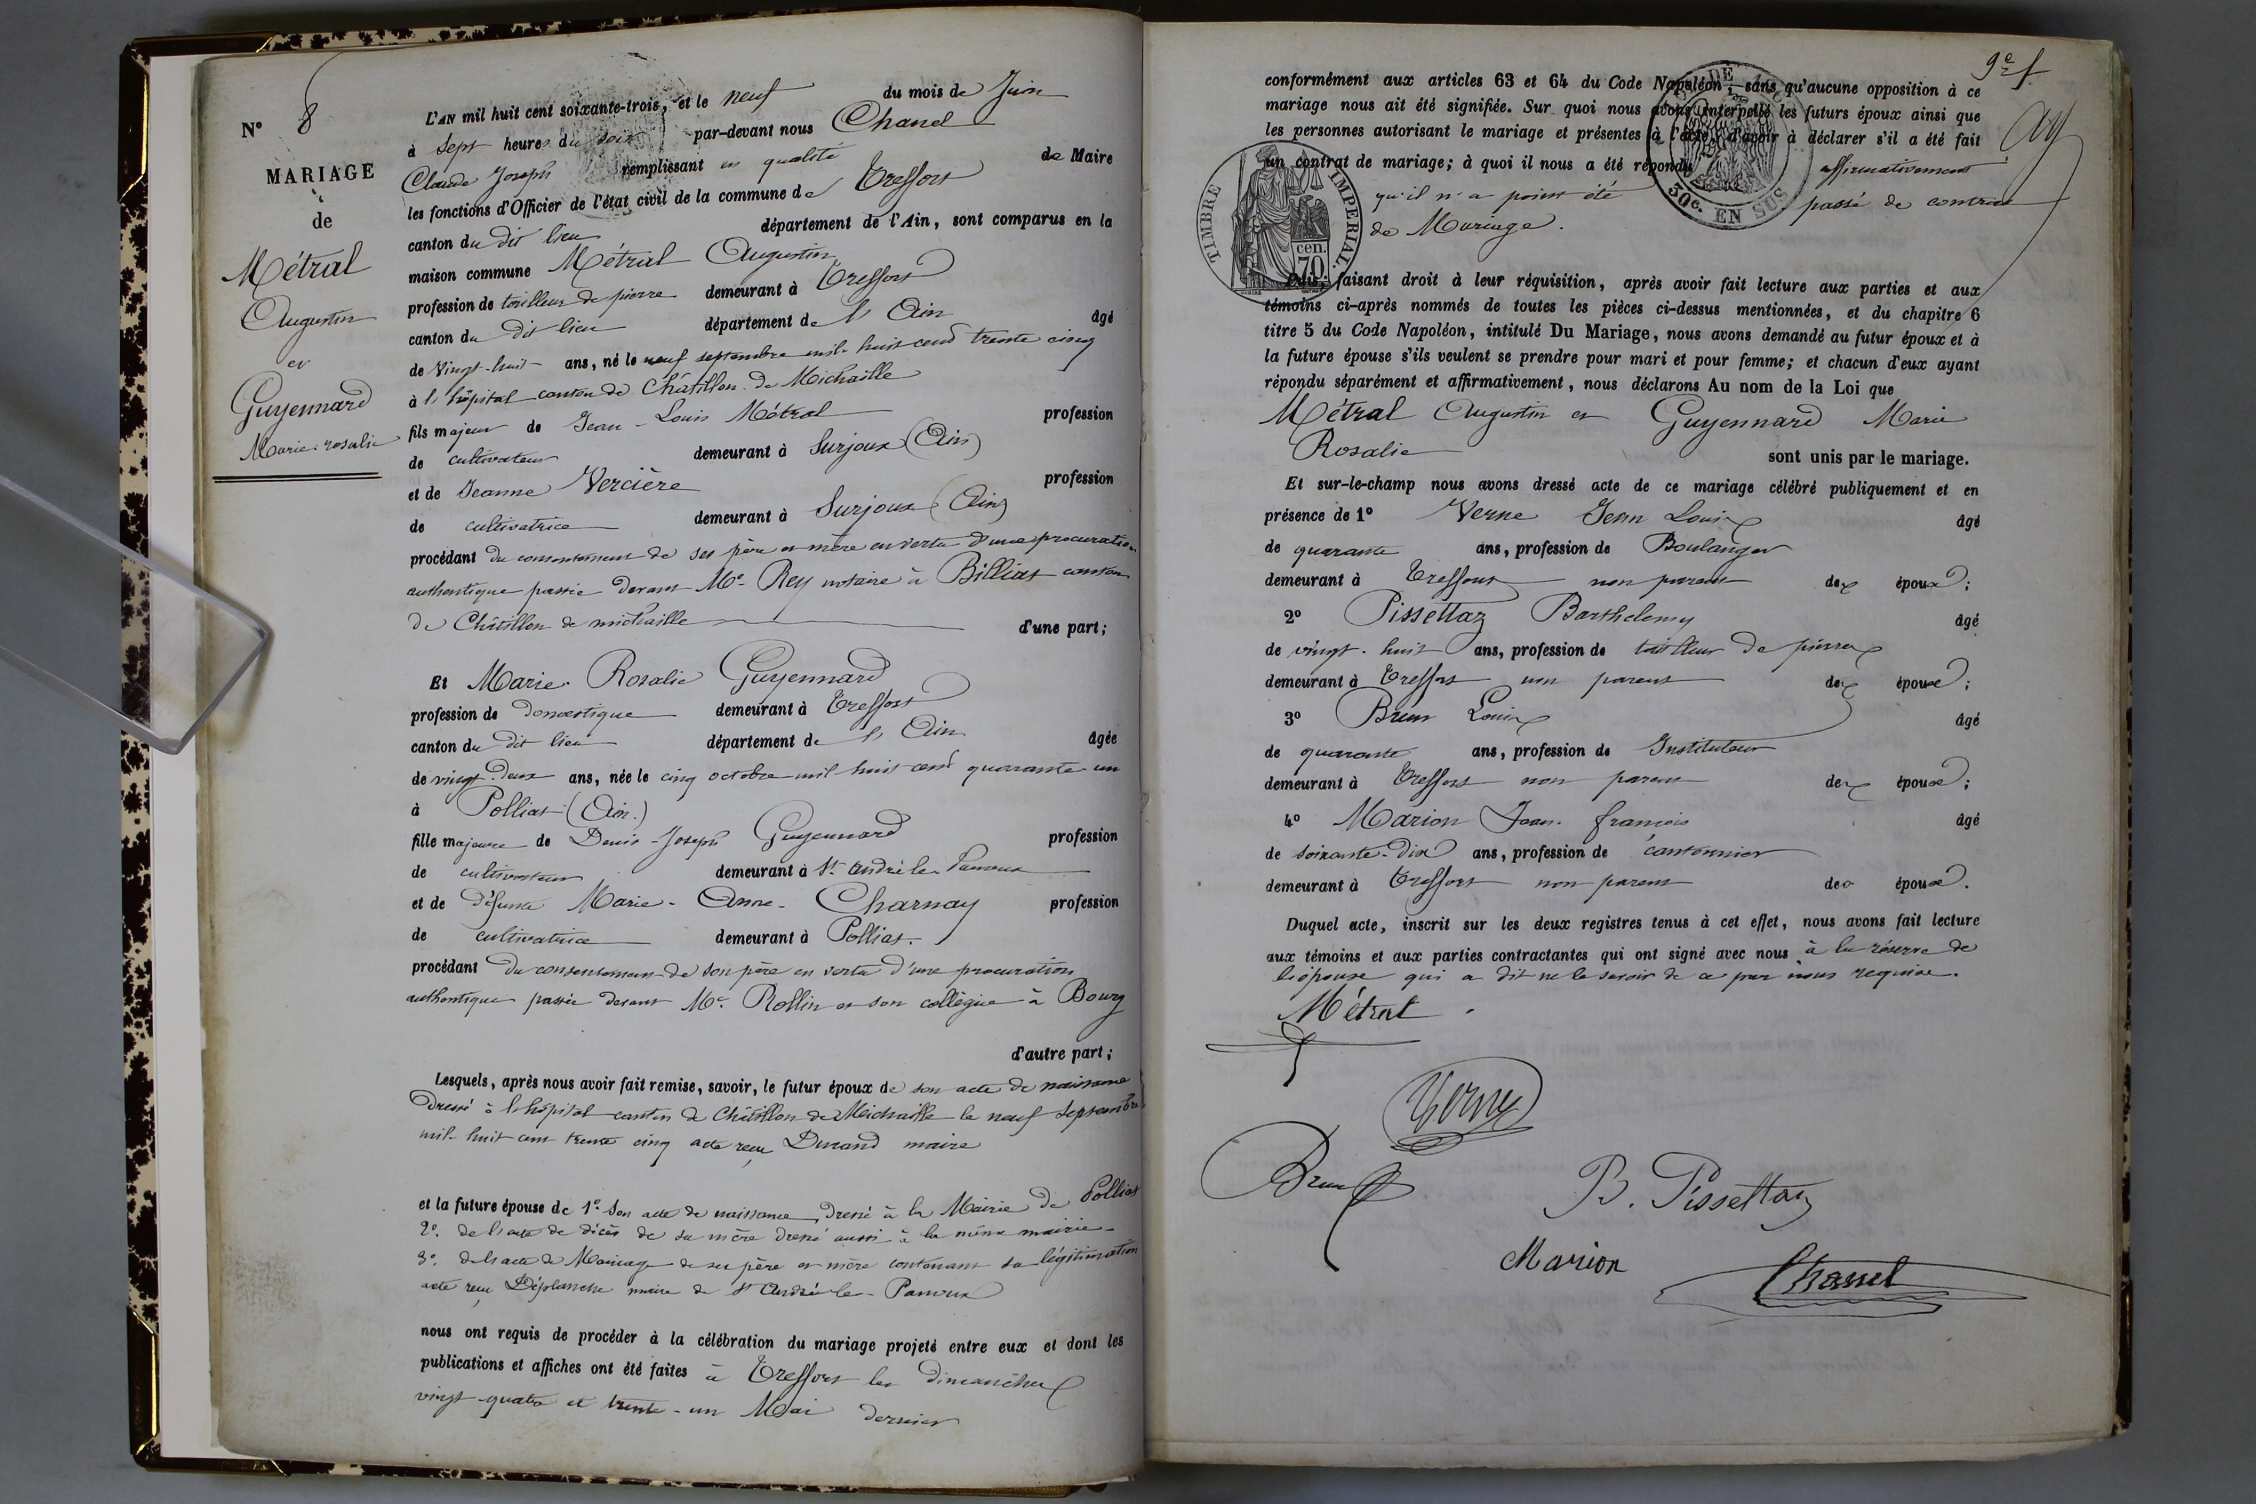 N° 8
MARIAGE
de
Métral
Augustin
et
Guyennard
Marie-rosalie
L'AN mil huit cent soixante-trois, et le neuf du mois de Juin
à sept heures du soir par-devant nous Chanel
Claude Joseph remplissant en qualité de Maire
les fonctions d'Officier de l'état civil de la commune de Treffort
canton du dit lieu département de l'Ain, sont comparus en la
maison commune Métral Augustin
profession de tailleur de pierre demeurant à Treffort
canton du dit lieu département de l'Ain âgé
de Vingt-huit ans, né le neuf septembre mil huit cent trente cinq
à l'hôpital canton de Châtillon de Michaille
fils majeur de Jean-Louis Métral profession
de cultivateur demeurant à Surjoux (Ain)
et de Jeanne Vercière profession
de cultivatrice demeurant à Surjoux (Ain)
procédant du consentement de ses père et mère en vertu d'une procuration
authentique passée devant Me Rey notaire à Billiat canton
de Châtillon de michaille d'une part;
Et Marie Rosalie Guyennard
profession de domestique demeurant à Treffort
canton du dit lieu département de l'Ain âgée
de vingt-deux ans, née le cinq octobre mil huit cent quarante un
à Polliat (Ain.)
fille majeure de Denis-Joseph Guyennard profession
de cultivateur demeurant à St André le Panoux
et de défunte Marie-Anne-Charnay profession
de cultivatrice demeurant à Polliat.
procédant du consentement de son père en vertu d'une procuration
authentique passée devant Me Rollin et son collègue à Bourg
d'autre part;
Lesquels, après nous avoir fait remise, savoir, le futur époux de son acte de naissance
Dressé à l'hôpital canton de Châtillon de Michaille le neuf septembre
mil huit cent trente cinq acte reçu Durand maire
et la future épouse de 1° Son acte de naissance dressé à la Mairie de Polliat
2° de l'acte de décès de sa mère dressé aussi à la même mairie-
3° de l'acte de Mariage de ses père et mère contenant sa légitimation
acte reçu Déplanche maire de St André-le-Panoux
nous ont requis de procéder à la célébration du mariage projeté entre eux et dont les
publications et affiches ont été faites à Treffort les dimanches
vingt-quatre et trente-un Mai dernier
9e f
conformément aux articles 63 et 64 du Code Napoléon; sans qu'aucune opposition à ce
mariage nous ait été signifiée. Sur quoi nous avons interpellé les futurs époux ainsi que
les personnes autorisant le mariage et présentes à l'acte, d'avoir à déclarer s'il a été fait
un contrat de mariage; à quoi il nous a été répondu affirmativement
qu'il n'a point été passé de contrat
de Mariage.
TIMBRE IMPÉRIAL
70 cen.
30c. EN SUS
Puis, faisant droit à leur réquisition, après avoir fait lecture aux parties et aux
témoins ci-après nommés de toutes les pièces ci-dessus mentionnées, et du chapitre 6
titre 5 du Code Napoléon, intitulé Du Mariage, nous avons demandé au futur époux et à
la future épouse s'ils veulent se prendre pour mari et pour femme; et chacun d'eux ayant
répondu séparément et affirmativement, nous déclarons Au nom de la Loi que
Métral Augustin et Guyennard Marie
Rosalie sont unis par le mariage.
Et sur-le-champ nous avons dressé acte de ce mariage célébré publiquement et en
présence de 1° Verne Jean Louis âgé
de quarante ans, profession de Boulanger
demeurant à Treffort non parent des époux;
2° Pissettaz Barthelemy âgé
de vingt-huit ans, profession de tailleur de pierre
demeurant à Treffort non parent des époux;
3° Brun Louis âgé
de quarante ans, profession de Instituteur
demeurant à Treffort non parent des époux;
4° Marion Jean-françois âgé
de soixante-dix ans, profession de cantonnier
demeurant à Treffort non parent des époux.
Duquel acte, inscrit sur les deux registres tenus à cet effet, nous avons fait lecture
aux témoins et aux parties contractantes qui ont signé avec nous à la réserve de
l'épouse qui a dit ne le savoir de ce par nous requise.
Métral
Verne
Brun
B. Pissettaz
Marion
Chanel